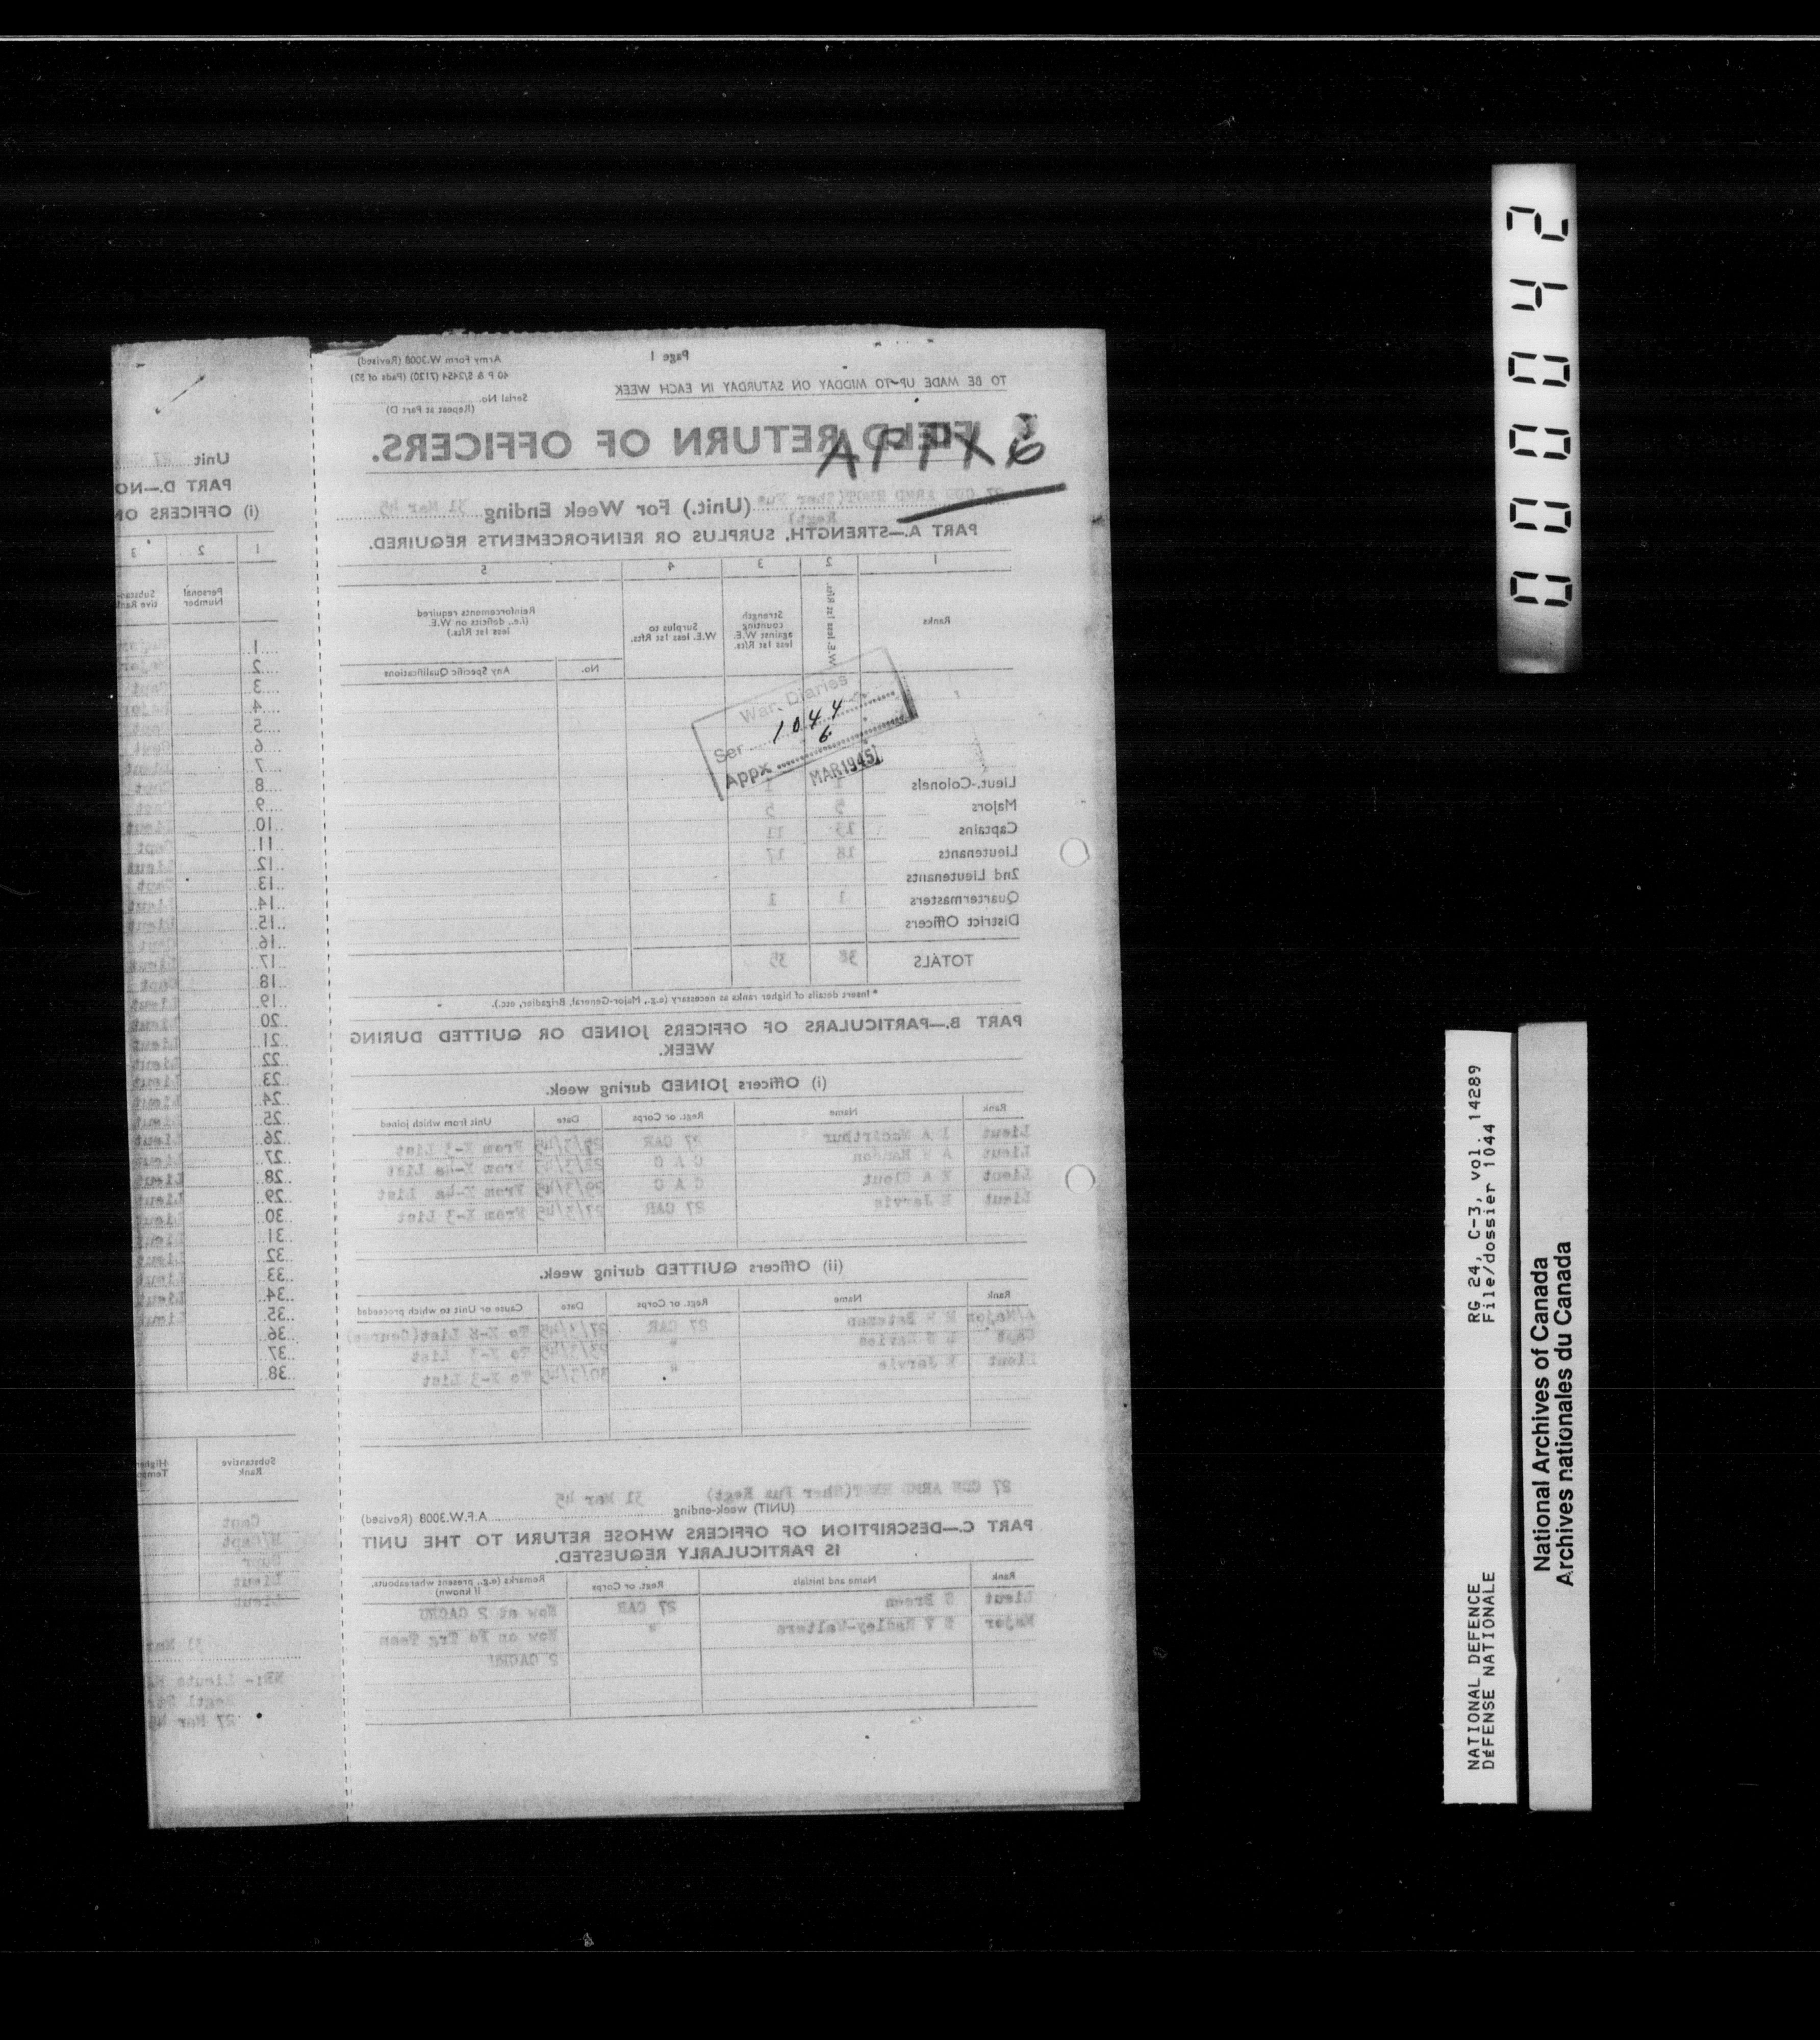 Page 1
Army Form W.3008 (Revised)
TO BE MADE UP TO MIDDAY ON SATURDAY IN EACH WEEK
Serial No.
(Repeat at Part D)
FIELD RETURN OF OFFICERS.
APPX 6
27 CDN ARMD REGT (Sher Fus Regt) (Unit.) For Week Ending 31 Mar 45
PART A.—STRENGTH, SURPLUS OR REINFORCEMENTS REQUIRED.
1 2 3 4 5
Ranks
W.E. less 1st Rfts.
Strength counting against W.E. less 1st Rfts.
Surplus to W.E. less 1st Rfts.
Reinforcements required (i.e., deficits on W.E. less 1st Rfts.)
No. Any Specific Qualifications
War Diaries
Ser 1044
Appx 6
MAR 1945
Lieut.-Colonels 1 1
Majors 5 5
Captains 13 11
Lieutenants 18 17
2nd Lieutenants
Quartermasters 1 1
District Officers
TOTALS 38 35
* Insert details of higher ranks as necessary (e.g., Major-General, Brigadier, etc.).
PART B.—PARTICULARS OF OFFICERS JOINED OR QUITTED DURING WEEK.
(i) Officers JOINED during week.
Rank Name Regt. or Corps Date Unit from which joined
Lieut A Macarthur 27 CAR 29/3/45 From X-3 List
Lieut C A C From X-4a List
Lieut C A C 29/3/45 From X-4a List
Lieut Jarvis 27 CAR 27/3/45 From X-3 List
(ii) Officers QUITTED during week.
Rank Name Regt. or Corps Date Cause or Unit to which proceeded
A/Major Bateman 27 CAR 27/3/45 To X-8 List (Course)
Capt " 23/3/45 To X-3 List
Lieut Jarvis " 30/3/45 To X-3 List
27 CDN ARMD REGT (Sher Fus Regt) 31 Mar 45
(UNIT) week-ending A.F.W.3008 (Revised)
PART C.—DESCRIPTION OF OFFICERS WHOSE RETURN TO THE UNIT
IS PARTICULARLY REQUESTED.
Rank Name and Initials Regt. or Corps Remarks (e.g., present whereabouts, if known)
Lieut S Breen 27 CAR Now at 2 CACRU
Major S V Radley-Walters " Now on Fd Trg Team
2 CACRU
Unit 27
PART D.—NO
(i) OFFICERS ON
1 2 3
Personal Number
Substantive Rank
1 Major
2 Major
3 Capt
4 Major
5 Capt
6 Capt
7 Lieut
8 Capt
9 Capt
10 Lieut
11 Capt
12 Lieut
13 Capt
14 Lieut
15 Lieut
16 Capt
17 Lieut
18 Capt
19 Lieut
20 Lieut
21 Lieut
22 Lieut
23 Lieut
24 Lieut
25 Lieut
26 Lieut
27 Lieut
28 Lieut
29 Lieut
30 Lieut
31 Lieut
32 Lieut
33 Lieut
34 Lieut
35 Lieut
36
37
38
Substantive Rank
Capt
H/Capt
Lieut
Lieut
31 Mar
NB:- Lieuts
Regtl
27 Mar 45
000042
RG 24, C-3, vol. 14289
File/dossier 1044
NATIONAL DEFENCE
DÉFENSE NATIONALE
National Archives of Canada
Archives nationales du Canada